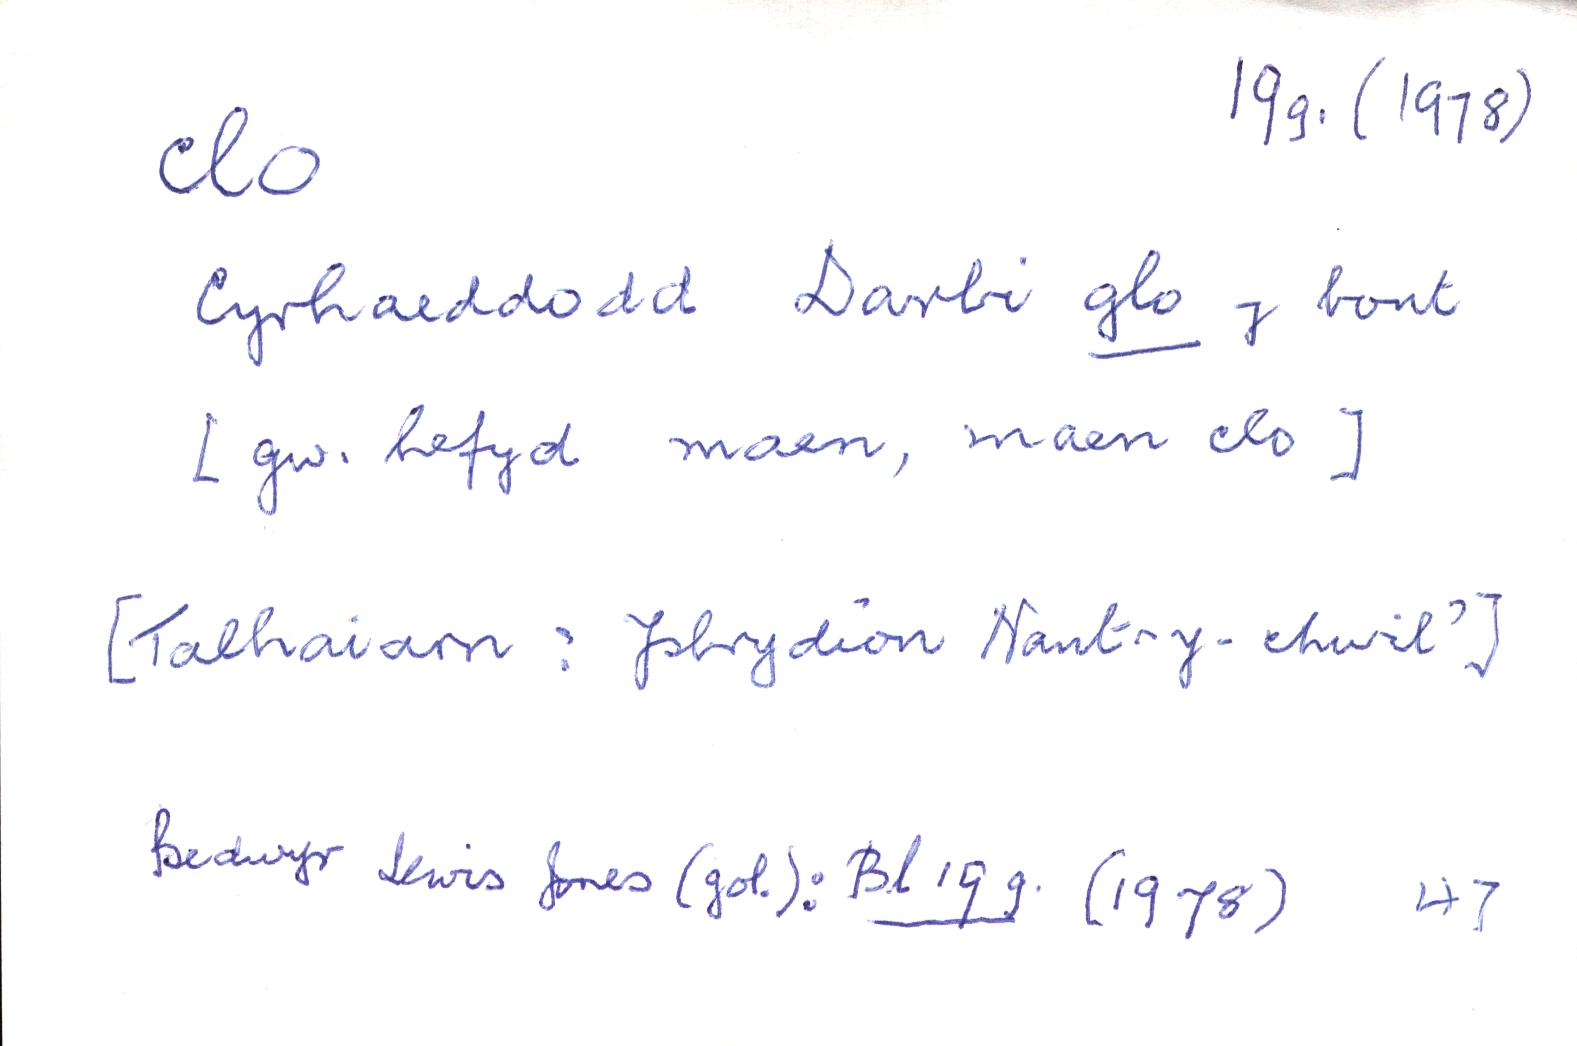 19g. (1978)
clo
Cyrhaeddodd Darbi glo y bont
[gw. hefyd maen, maen clo]
[Talhaiarn : Ysbrydion Nant-y-chwil']
Bedwyr Lewis Jones (gol.): Bl 19g. (1978) 47